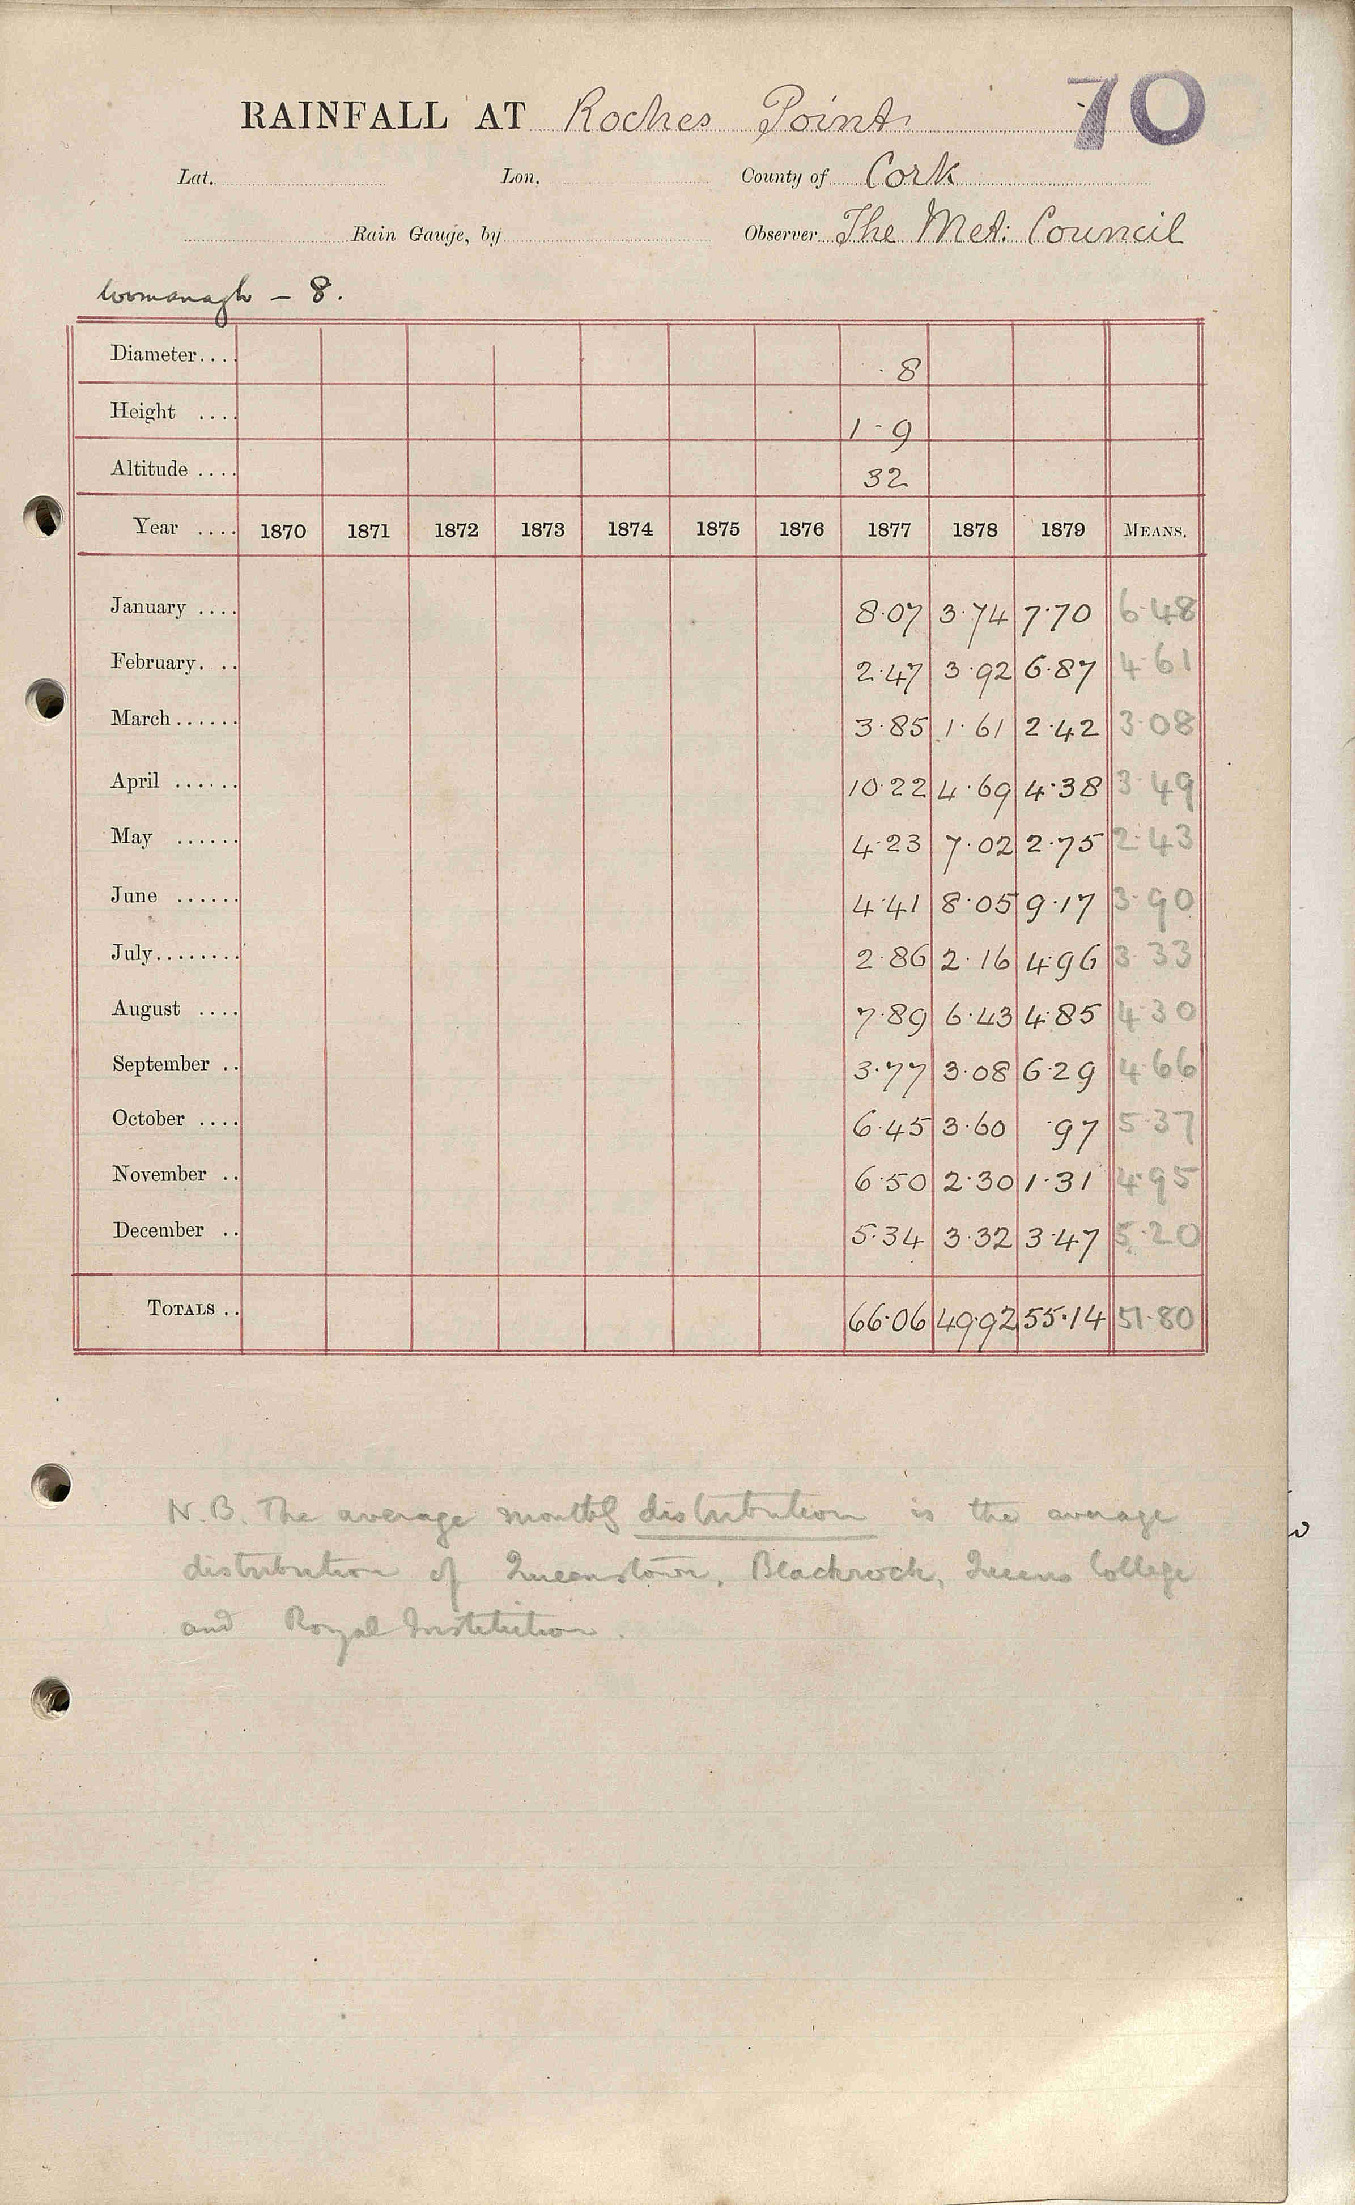 70
RAINFALL AT Roches Point
Lat. Lon. County of Cork
Rain Gauge, by Observer The Met: Council
Womanagh – 8.
Diameter.... 8
Height .... 1-9
Altitude .... 32
Year .... 1870 1871 1872 1873 1874 1875 1876 1877 1878 1879 MEANS.
January .... 8·07 3·74 7·70 6·48
February. .. 2·47 3·92 6·87 4·61
March...... 3·85 1·61 2·42 3·08
April ...... 10·22 4·69 4·38 3·49
May ...... 4·23 7·02 2·75 2·43
June ...... 4·41 8·05 9·17 3·90
July........ 2·86 2·16 4·96 3·33
August .... 7·89 6·43 4·85 4·30
September .. 3·77 3·08 6·29 4·66
October .... 6·45 3·60 ·97 5·37
November .. 6·50 2·30 1·31 4·95
December .. 5·34 3·32 3·47 5·20
TOTALS .. 66·06 49·92 55·14 51·80
N.B. The average monthly distribution is the average
distribution of Queenstown, Blackrock, Queens College
and Royal Institution.